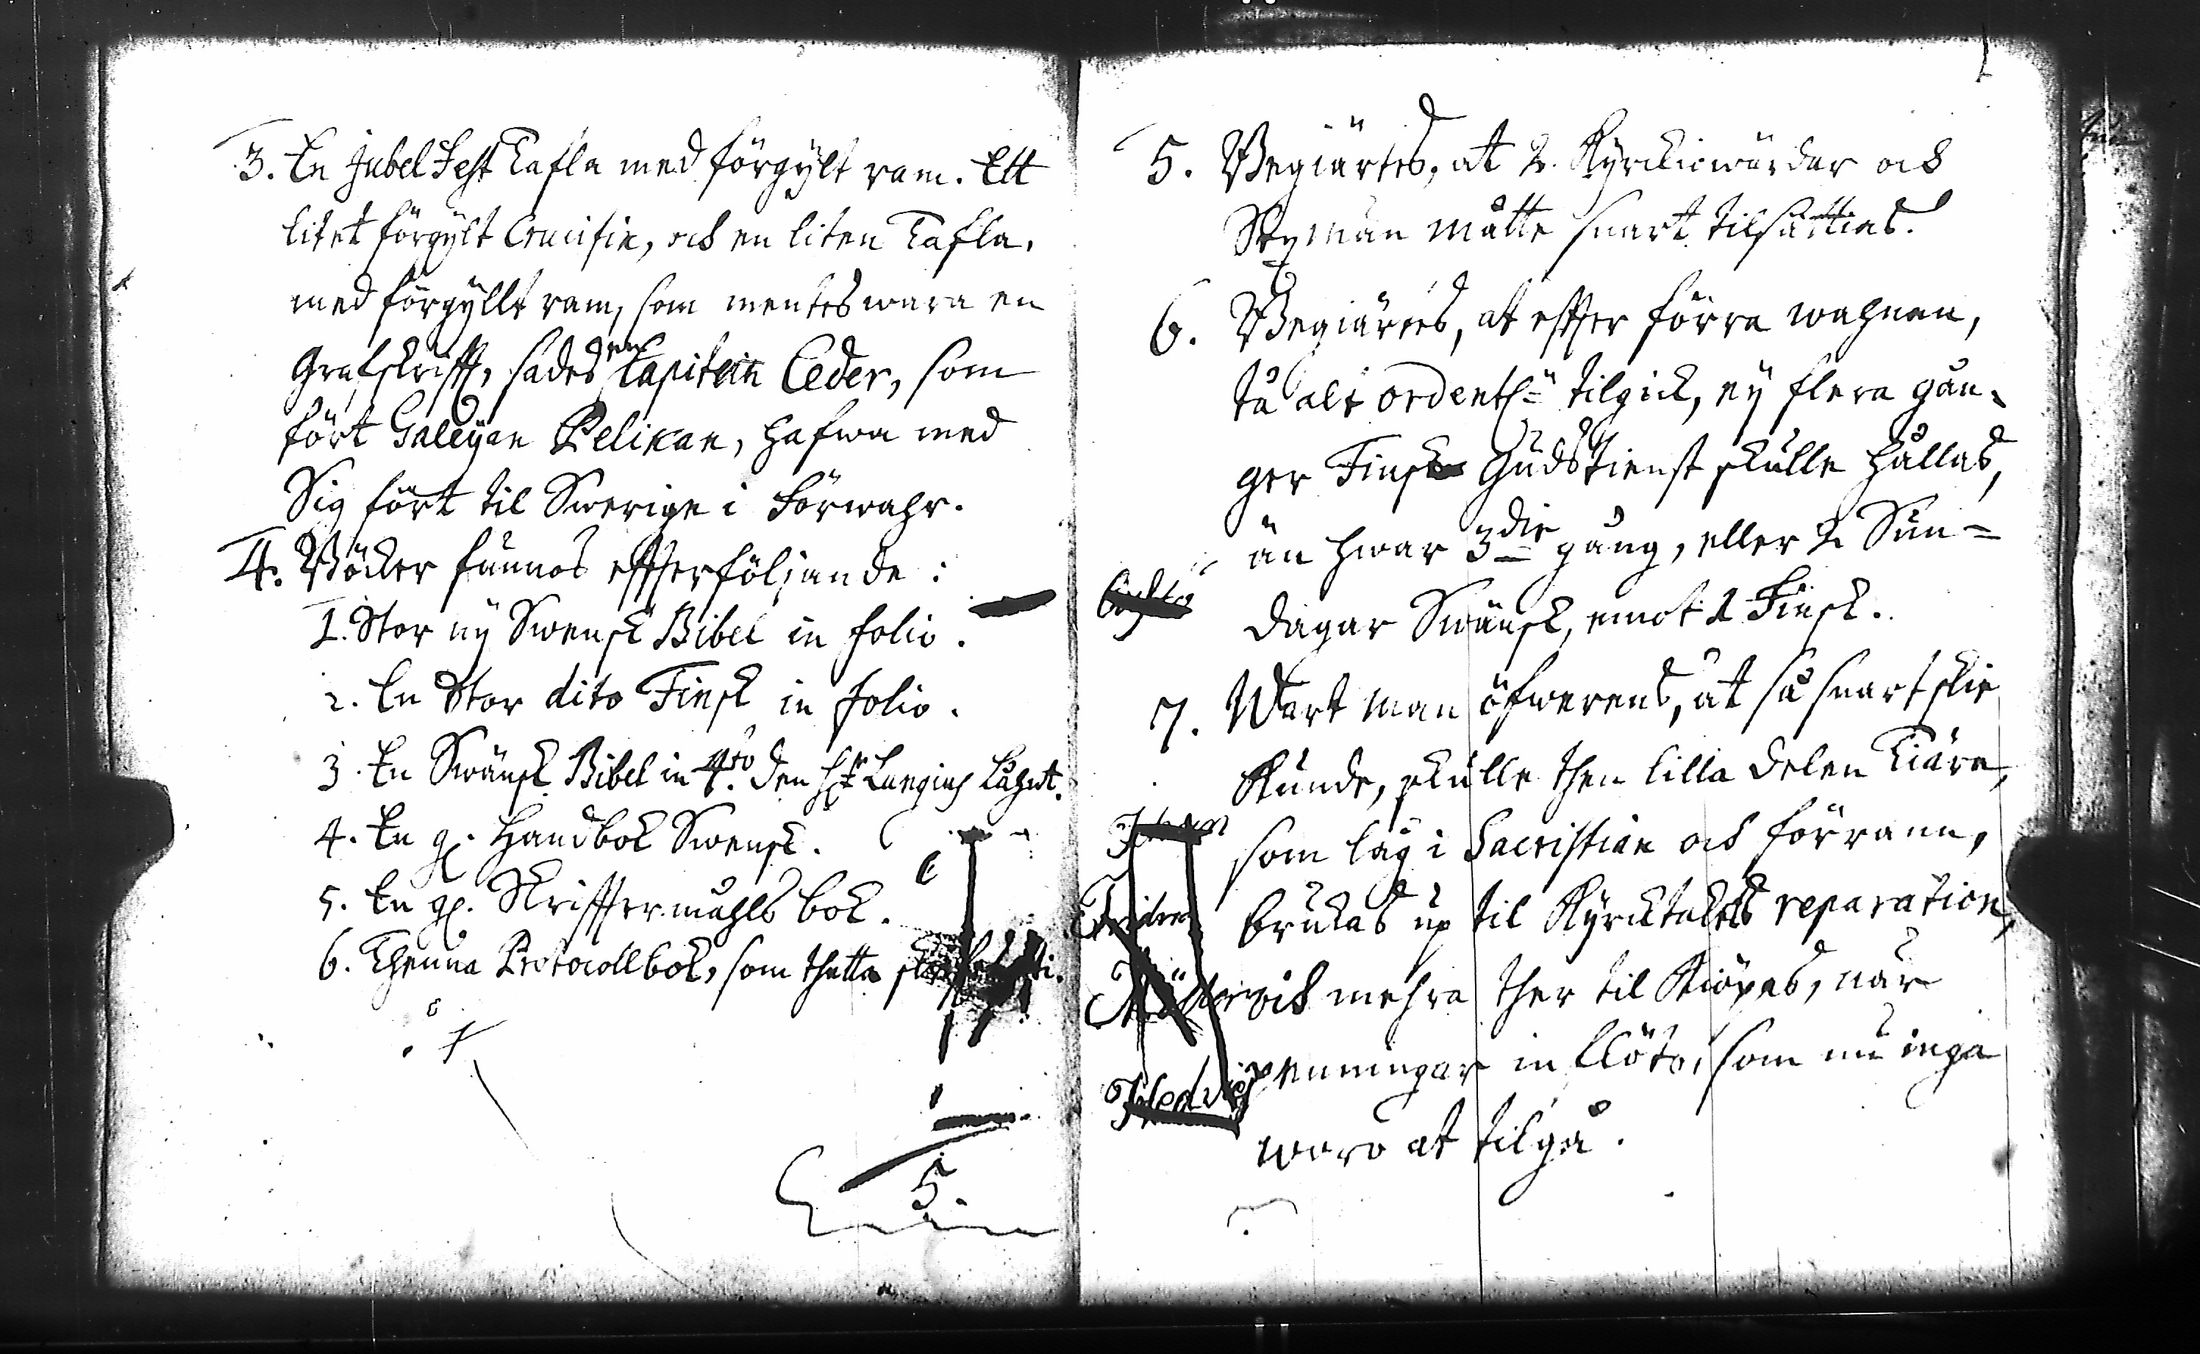 3. En Jubel Fest Tafla med förgylt ram. Ett
litet förgylt Crucifix, och en liten Tafla,
med förgyllt ram, som mentes wara en
Grafskrifft, sades en Capitein Ceder, som
fört Galeyan Pelikan, hafwa med
Sig fört til Swerige i förwahr.
4. Böcker funnos effterföljande:
1. Stor ny Swensk Bibel in folio.
2. En Stor dito Finsk in folio.
3. En Swänsk Bibel in 4to. den Hr Langius
4. En gl. Handbok Swensk.
5. En gl. Skrifftermåhls bok.
6. Thenna Protocollbok, som thetta
5.
5. Begiärtes, at 2. Kyrckiowärdar och
Sexmän måtte snart tilsättias.
6. Begiärtes, at effter förra wahnan,
tå alt ordentl: tilgick, ey flera gån-
ger Finsk Gudstienst skulle hållas,
än hwar 3die gång, eller 2 Sun=
dagar Swänsk, emot 1 Finsk.
7. Wart man öfwerens, at så snart skie
kunde, skulle then lilla delen Tiära,
som låg i Sacristian och förrann,
brukas up til Kyrcktakets reparation,
och mehra ther til kiöpas, när
penningar in flöto, som nu inga
woro at tilgå.
Hedvig